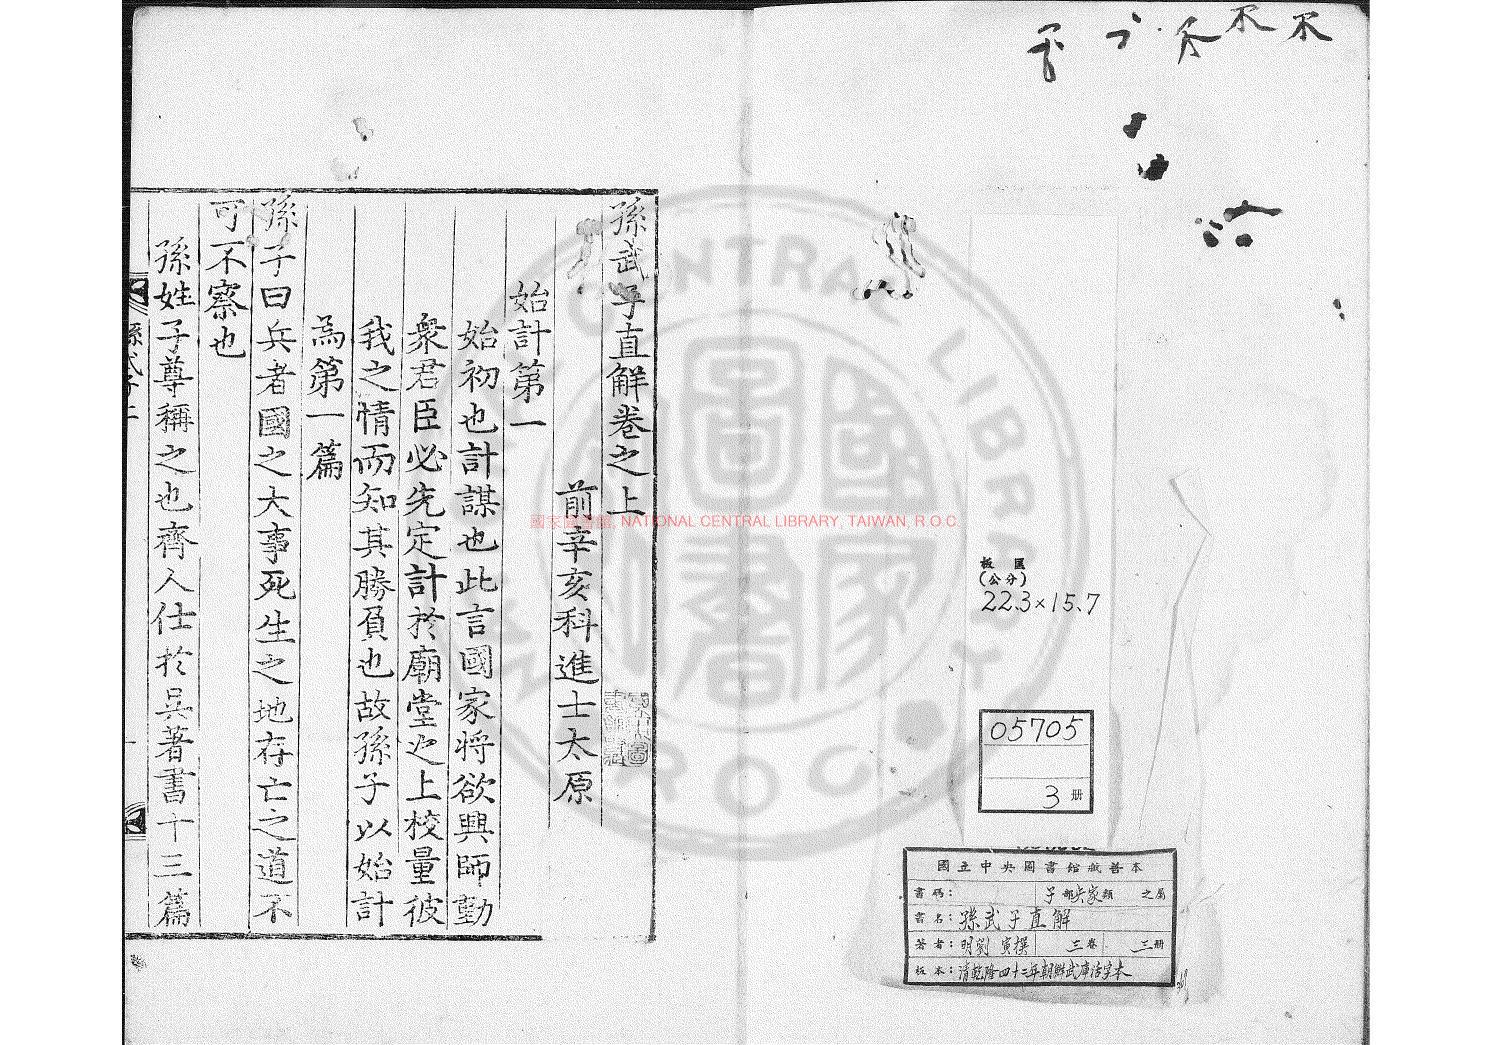 不不
板匡
(公分)
22.3×15.7
05705
3 册
國立中央圖書館藏善本
書碼： 子部兵家類 之屬
書名：孫武子直解
著者：明劉寅撰 三卷 三册
板本：清乾隆四十三年朝鮮武庫活字本
孫武子直解卷之上
前辛亥科進士太原
始計第一
始初也計謀也此言國家将欲興師動
衆君臣必先定計於廟堂之上校量彼
我之情而知其勝負也故孫子以始計
為第一篇
孫子曰兵者國之大事死生之地存亡之道不
可不察也
孫姓子尊稱之也齊人仕於吳著書十三篇
孫武子上
一
國家圖書館, NATIONAL CENTRAL LIBRARY, TAIWAN, R.O.C.
NATIONAL CENTRAL LIBRARY R.O.C.
國家圖書